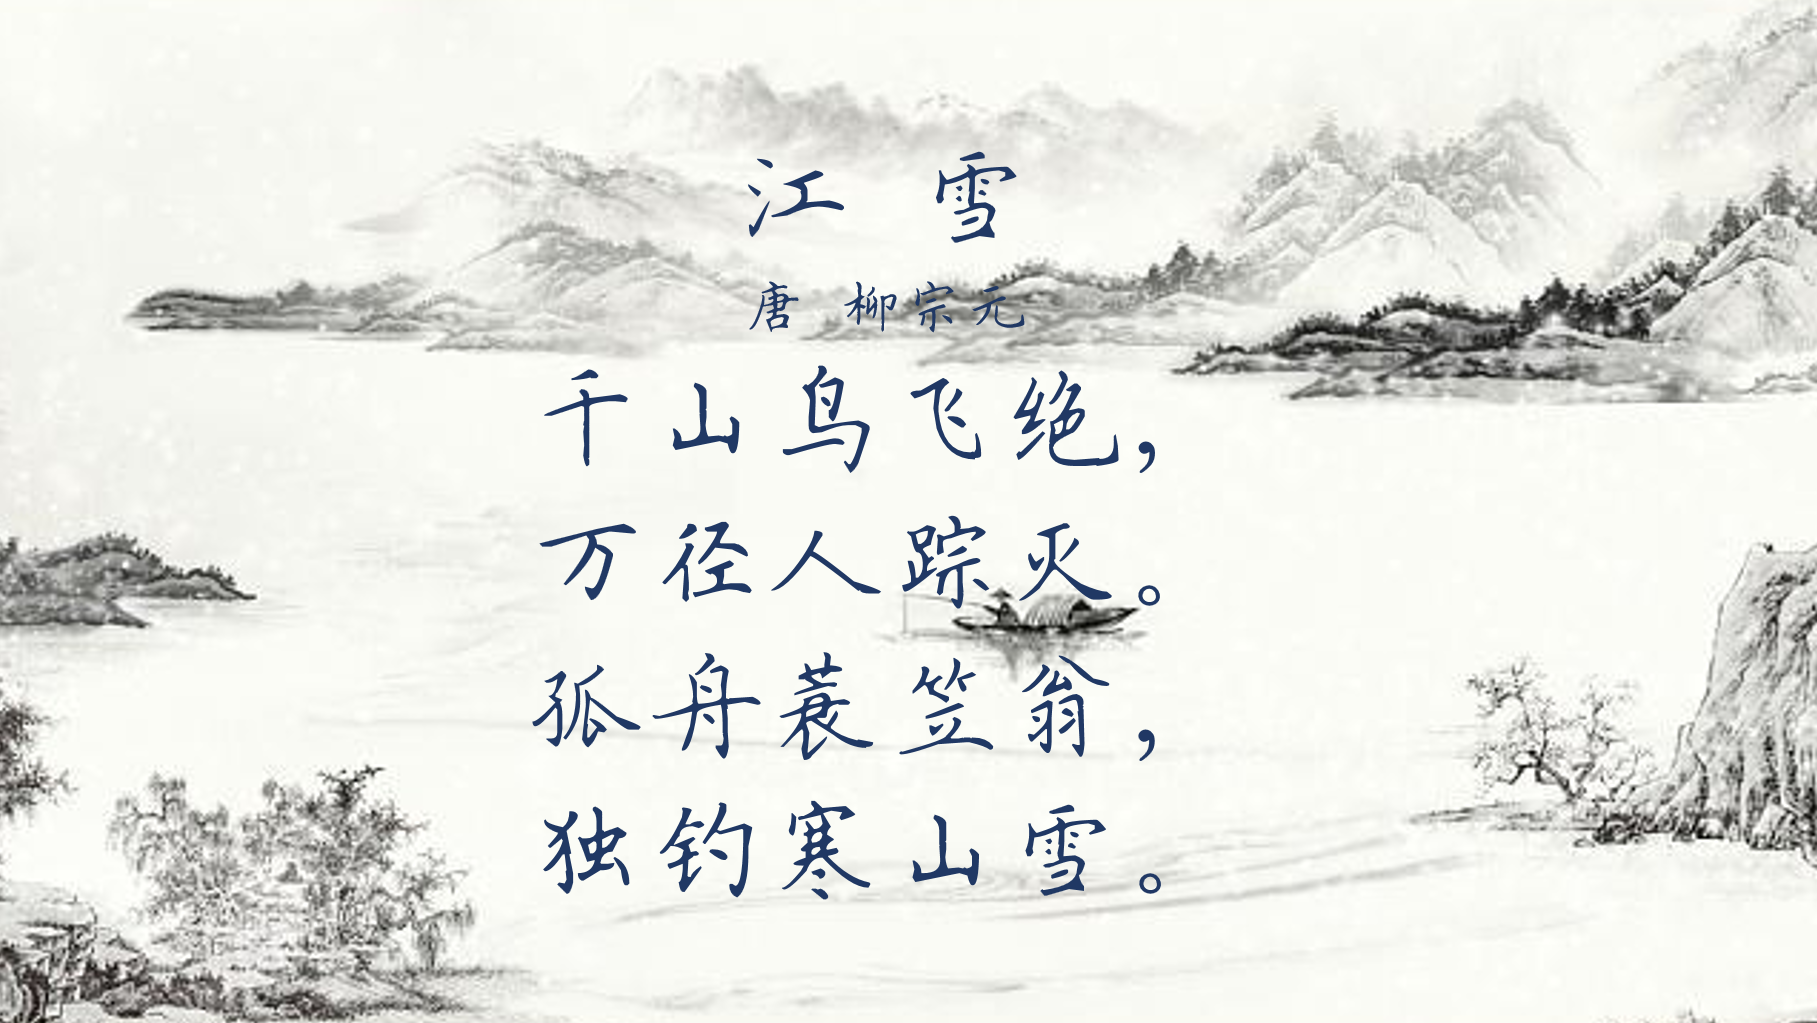 江 雪
唐 柳宗元
千山鸟飞绝，
万径人踪灭。
孤舟蓑笠翁，
独钓寒山雪。